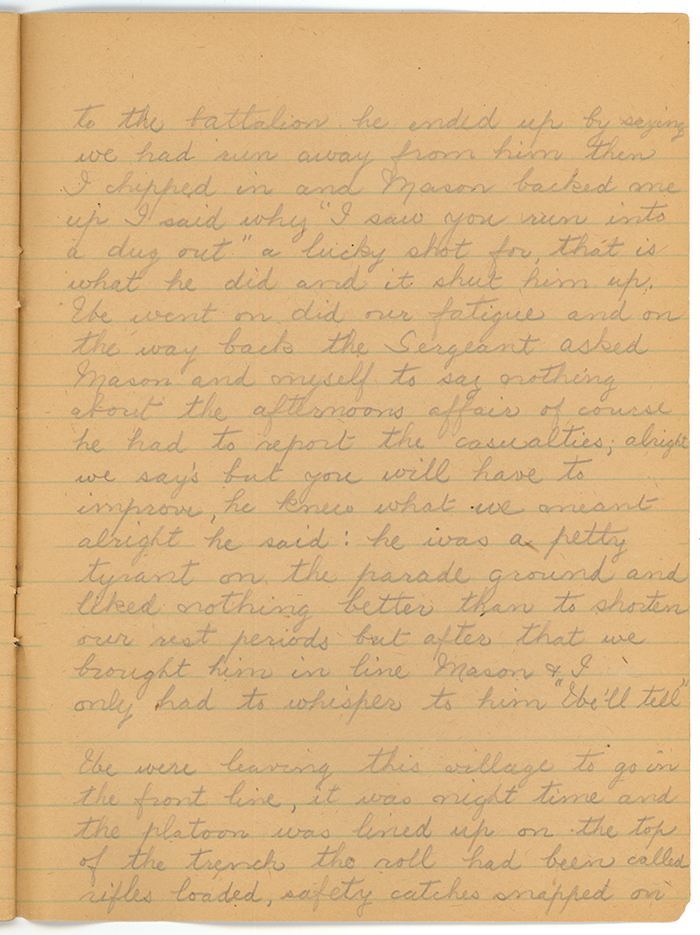 to the battalion he ended up by saying
we had run away from him then
I chipped in and Mason backed me
up I said why "I saw you run into
a dug out" a lucky shot for, that is
what he did and it shut him up.
We went on did our fatigue and on
the way back the Sergeant asked
Mason and myself to say nothing
about the afternoons affair of course
he had to report the casualties; alright
we say's but you will have to
improve, he knew what we meant
alright he said: he was a petty
tyrant on the parade ground and
liked nothing better than to shorten
our rest periods but after that we
brought him in line Mason & I
only had to whisper to him "We'll tell"
We were leaving this village to go in
the front line, it was night time and
the platoon was lined up on the top
of the trench the roll had been called
rifles loaded, safety catches snapped on